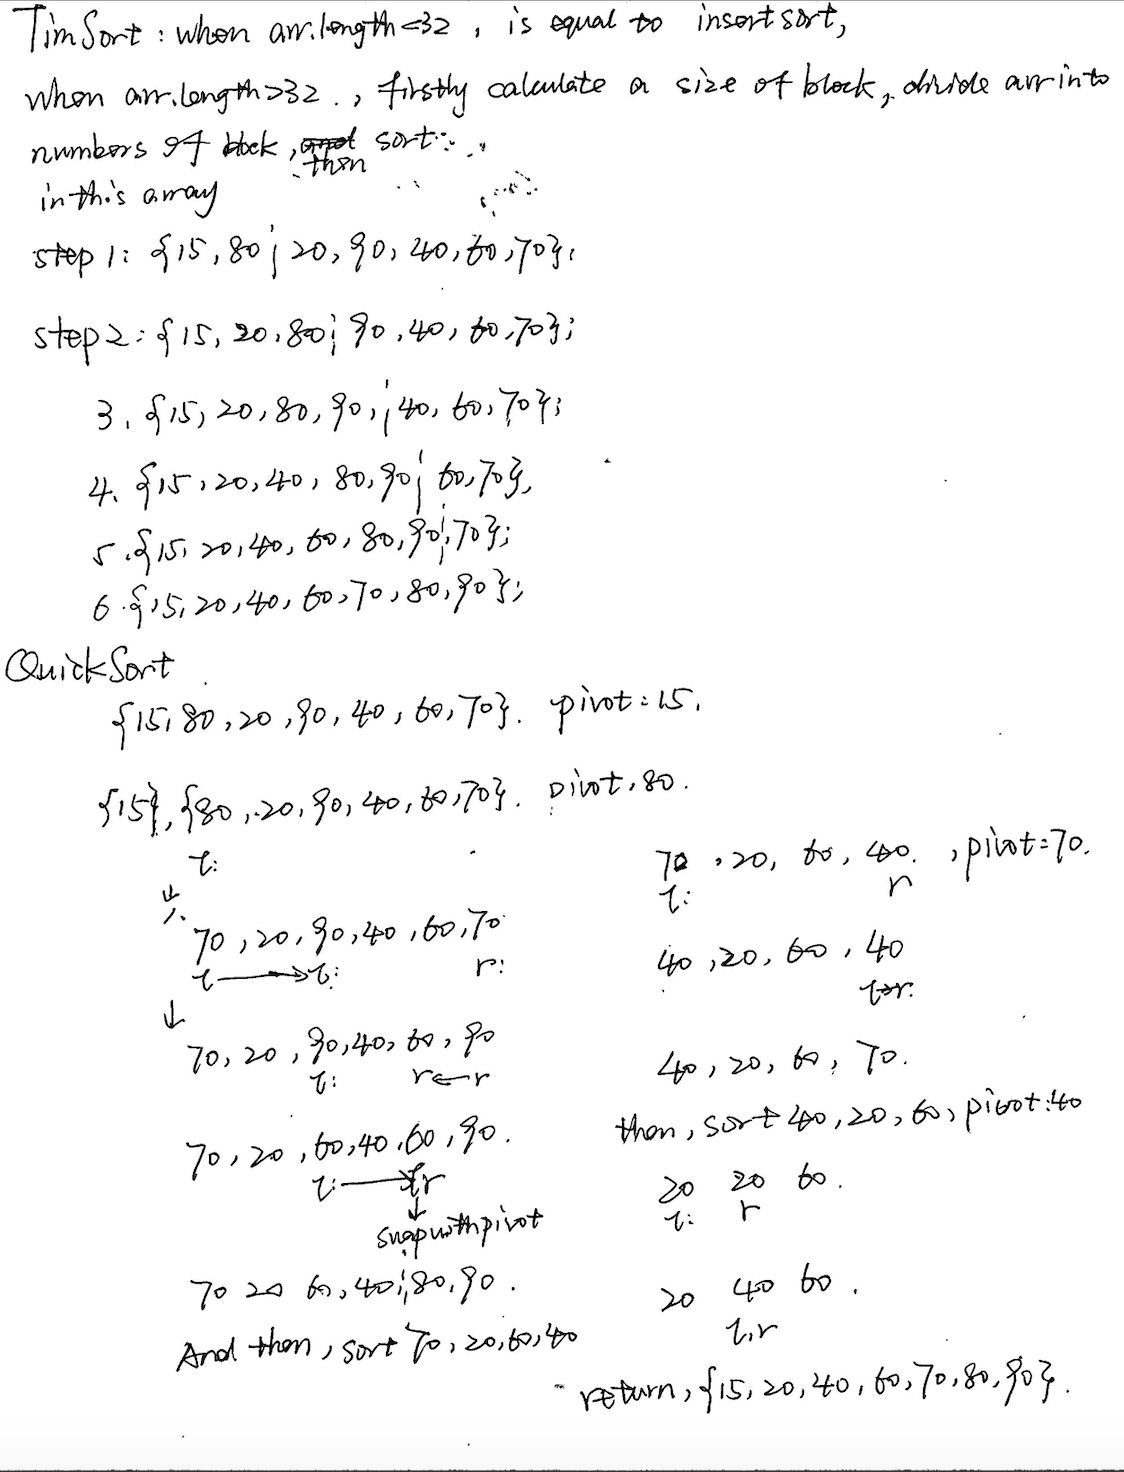 TimSort : when arr.length<32 , is equal to insertsort,
when arr.length>32 ., firstly calculate a size of block, divide arr into
numbers of block, then sort
in this array
step 1: {15,80¦20,90,40,60,70};
step2: {15,20,80¦90,40,60,70};
3. {15,20,80,90,¦40,60,70};
4. {15,20,40,80,90¦60,70},
5. {15,20,40,60,80,90¦70};
6. {15,20,40,60,70,80,90};
QuickSort
{15,80,20,90,40,60,70}. pivot=15.
{15},{80,20,90,40,60,70}. pivot,80.
l:
↓
70,20,90,40,60,70
l→l: r:
↓
70,20,90,40,60,90
l: r←r
70,20,60,40,60,90.
l:→lr
↓
swap with pivot
70 20 60,40¦80,90.
And then, sort 70,20,60,40
70,20,60,40. ,pivot=70.
l: r
40,20,60,40
l→r.
40,20,60,70.
then, sort 40,20,60, pivot:40
20 20 60.
l: r
20 40 60.
l,r
return, {15,20,40,60,70,80,90}.